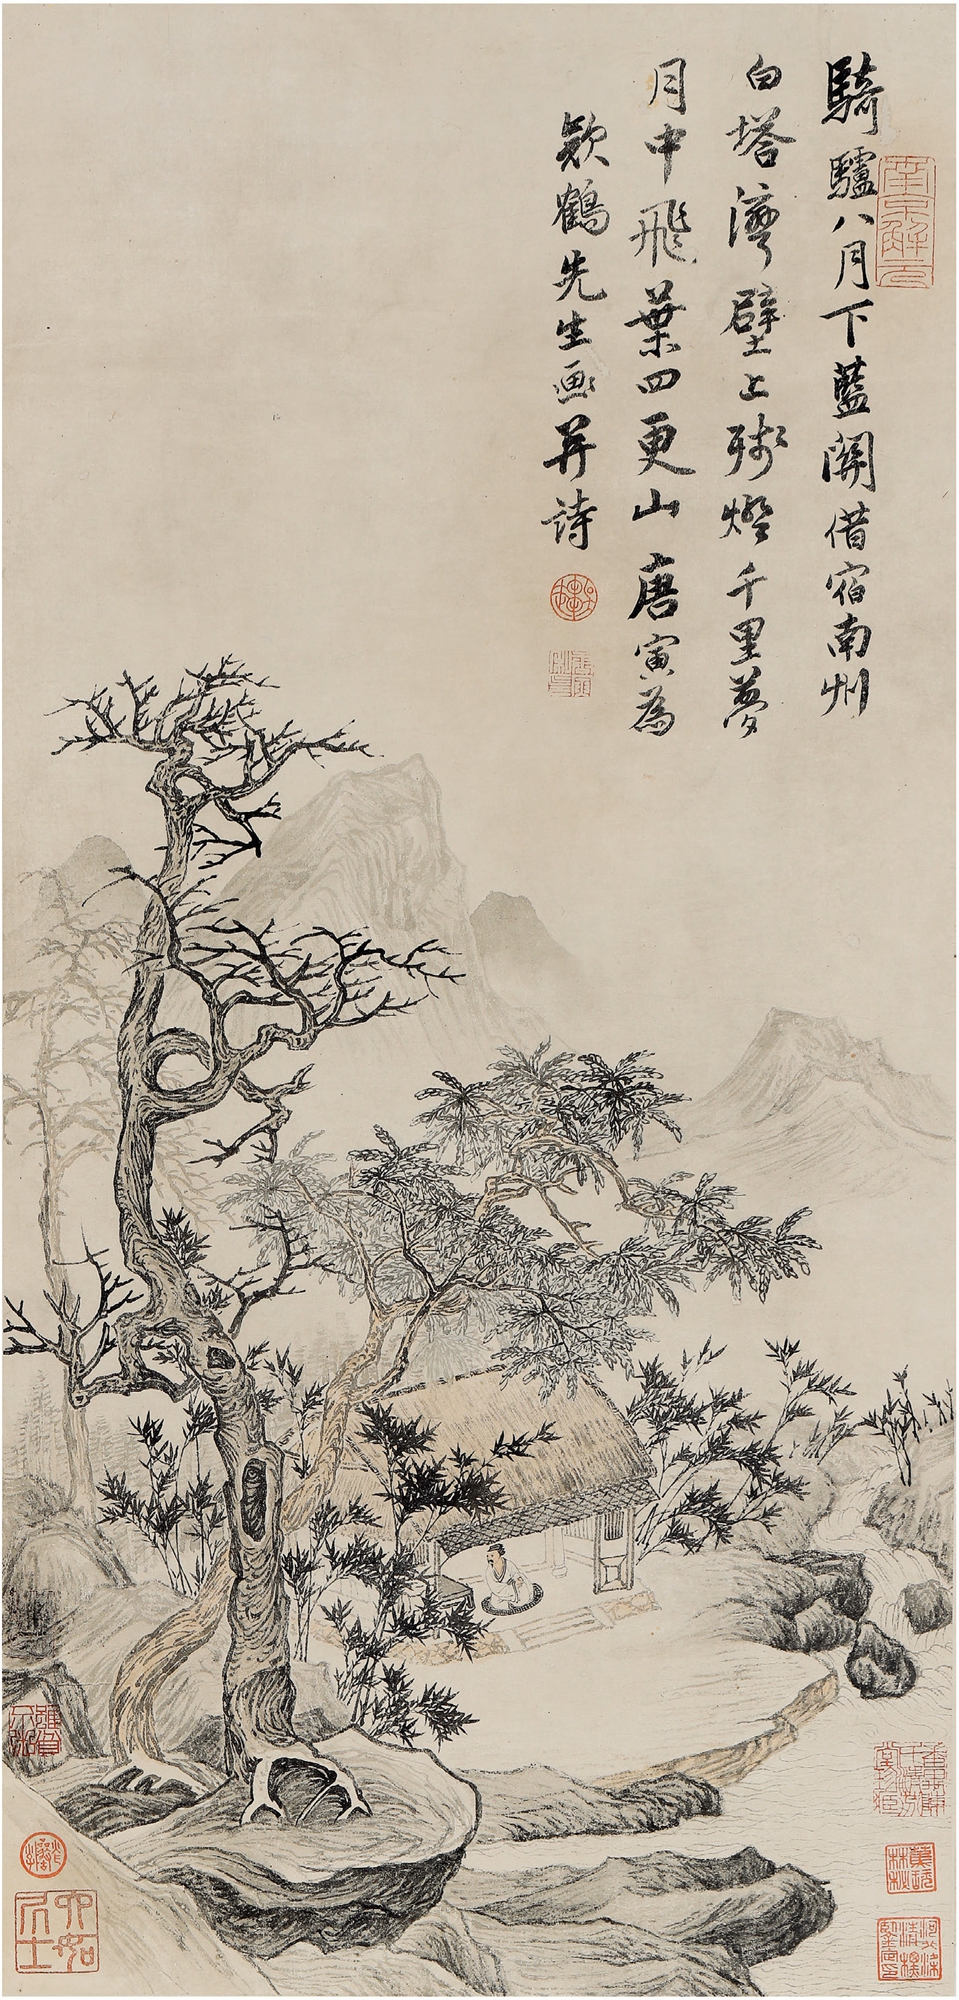 騎驢八月下藍關借宿南州
白塔灣壁上殘燈千里夢
月中飛葉四更山唐寅為
欵鶴先生画并詩
南京解元
六如居士